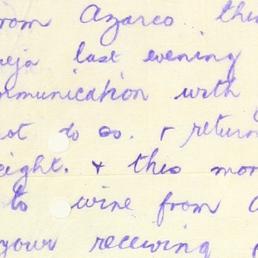 rom Azarco this
eja last evening
mmunication with
ot to do. & return
eight. & this mor
to wire from
your receiving